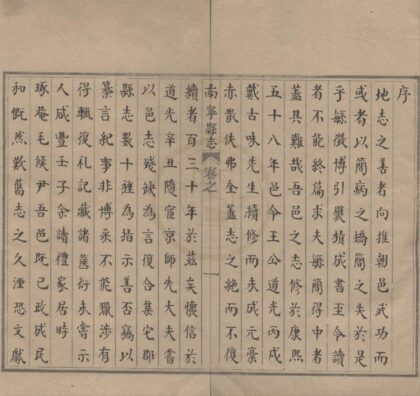 序
地志之善者向推朝邑武功而
或者以簡病之矯簡之失於是
乎緐徵博引襞積成書至今讀
者不能終篇求夫緐簡得中者
蓋其難哉吾邑之志修於康熙
五十八年邑令王公道光丙戌
戴古味先生續修而未成元稾
亦散佚弗全蓋志之絶而不復
南寧縣志 卷之 一
續者百三十年於茲矣懷信於
道光辛丑隨宦京師先大夫嘗
以邑志殘缺為言復合集它郡
縣志數十種為指示善否竊以
纂言紀事非博采不能獵涉有
得輒復札記藏諸篋衍未嘗示
人咸豐壬子余讀禮家居時
琢菴毛侯尹吾邑既已政成民
和慨然歎舊志之久湮恐文獻